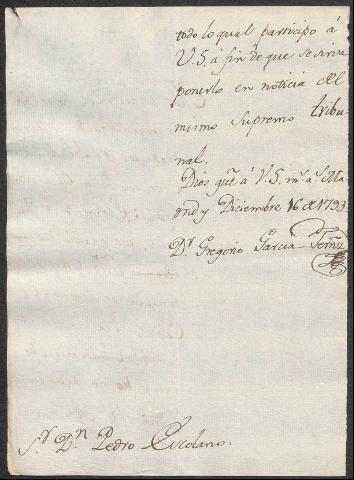 todo lo qual participo á
V. S. á fin de que se sirva
ponerlo en noticia del
mismo Supremo tribu
nal.
Dios gue. á V. S. ms. as. Ma
drid y Diciembre 16 de 1793
Dr. Gregorio Garcia
Sr. Dn. Pedro Escolano.